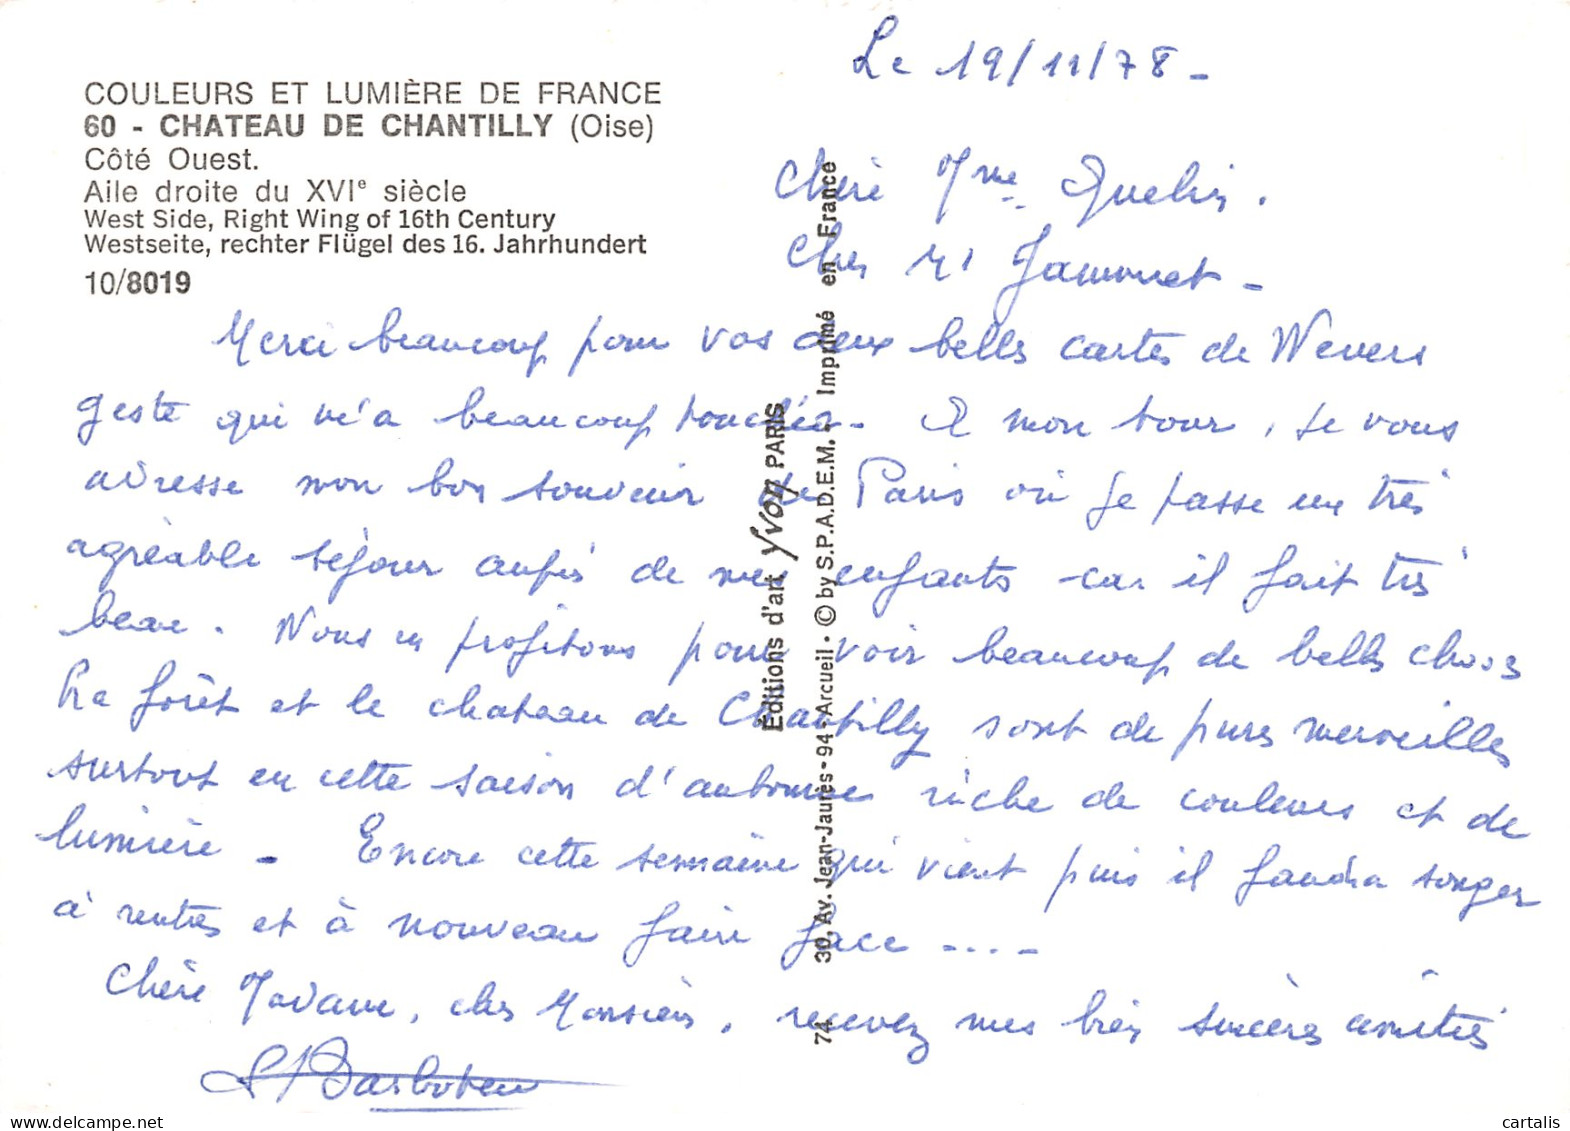 Le 19/11/78 -
COULEURS ET LUMIÈRE DE FRANCE
60 - CHATEAU DE CHANTILLY (Oise)
Côté Ouest.
Aile droite du XVIe siècle
West Side, Right Wing of 16th Century
Westseite, rechter Flügel des 16. Jahrhundert
10/8019
Chère Mme
Cher Mr
Merci beaucoup pour vos deux belles cartes de Nevers
geste qui m'a beaucoup touchée - A mon tour, je vous
adresse mon bon souvenir de Paris où je passe un très
agréable séjour auprès de mes enfants car il fait très
beau. Nous en profitons pour voir beaucoup de belles choses
La forêt et le chateau de Chantilly sont de pures merveilles
surtout en cette saison d'automne riche de couleurs et de
lumière - Encore cette semaine qui vient puis il faudra songer
à rentrer et à nouveau faire face -...-
Chère Madame, cher Monsieur, recevez mes bien sincères amitiés
Barboteu
Editions d'art Yvon PARIS
74 30, Av. Jean-Jaurès - 94 - Arcueil • © by S.P.A.D.E.M. - Imprimé en France
cartalis